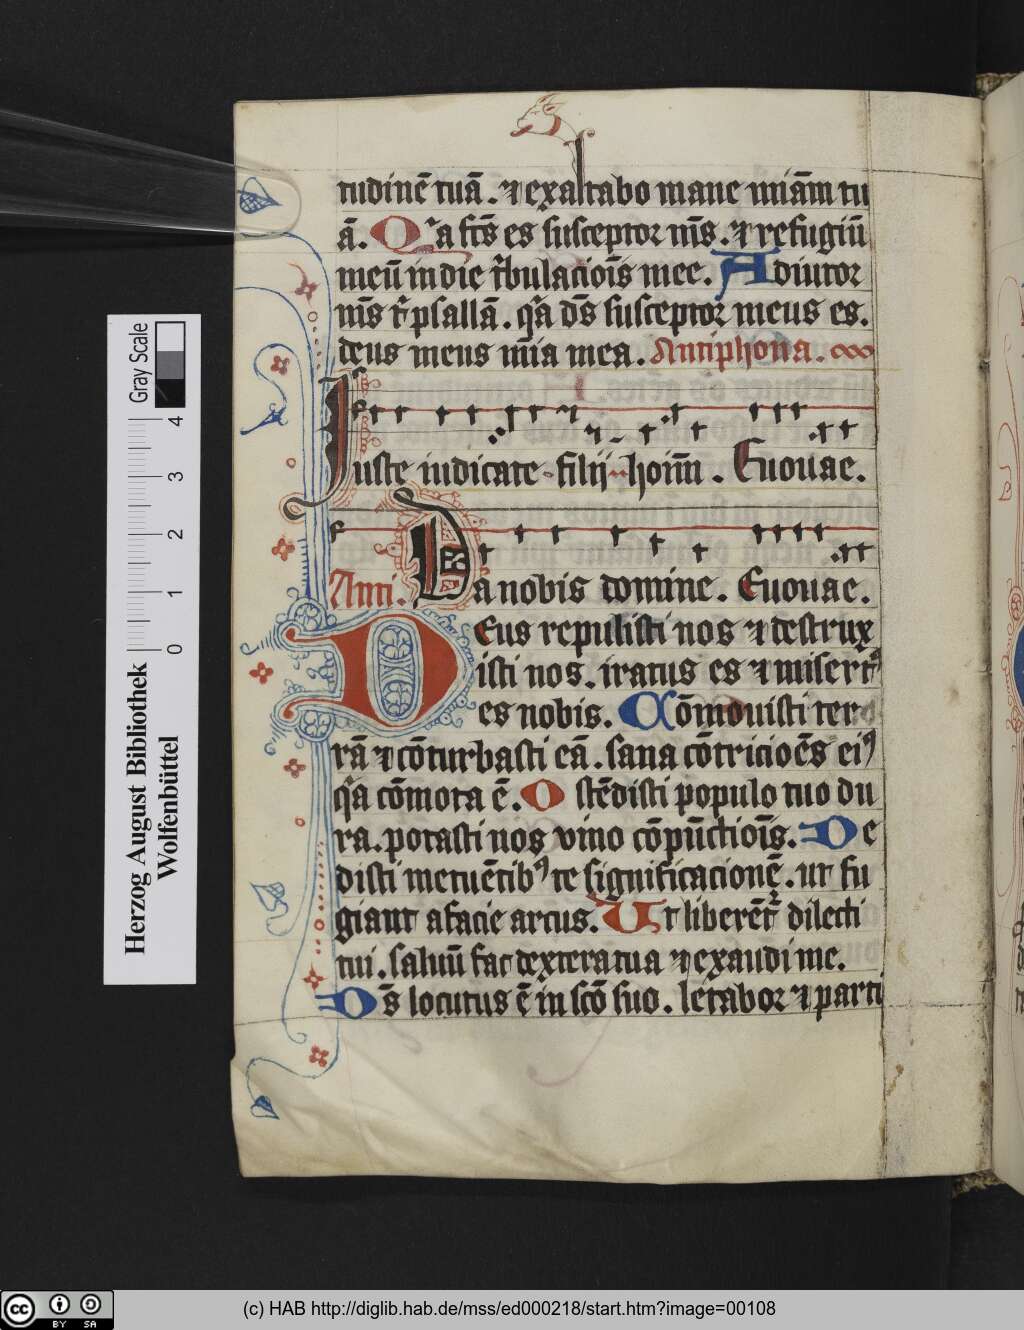 tudinē tuā. ⁊ exaltabo mane miām tu
ā. Qͥa fc̄s es susceptor ms̄. ⁊ refugiū
meū in die tͥbulaciōis mee. Adiutor
ms̄ tͥ psallā. qͥa dē̄s susceptor meus es.
deus meus mīa mea. Antiphona.
Iuste iudicate filij hoim̄. Euouae.
Anti. Da nobis domine. Euouae.
Deus repulisti nos ⁊ destrux
isti nos. iratus es ⁊ misert᷒
es nobis. Cōmouisti ter
rā ⁊ cōturbasti eā. sana cōtricioēs ei᷒
qͥa cōmota ē. Ostēdisti populo tuo du
ra. potasti nos vino cōpūctiōis. De
disti metuētib᷒ te significacionē. ut fu
giant a facie arcus. Ut liberēt᷑ dilecti
tui. saluū fac dextera tua ⁊ exaudi me.
Ds̄ locutus ē in scō suo. letabor ⁊ parti
Gray Scale
4
3
2
1
0
Herzog August Bibliothek
Wolfenbüttel
cc BY SA
(c) HAB http://diglib.hab.de/mss/ed000218/start.htm?image=00108